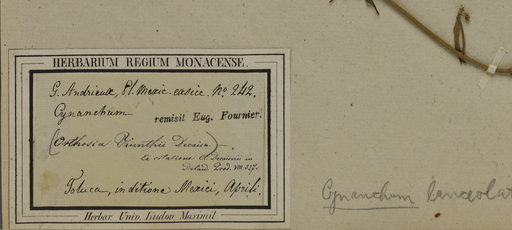 HERBARIUM REGIUM MONACENSE.
G. Andrieux, Pl. Mexic. exsicc. No. 242.
Cynanchum
remisit Eug. Fournier.
(Orthosia Decaisn.)
ex citatione Decaisnii in
Deland. Prod. VIII. 527.
Toluca, in ditione Mexici, Aprili.
Herbar. Univ. Ludov. Maximil.
Cynanchum lanceolat